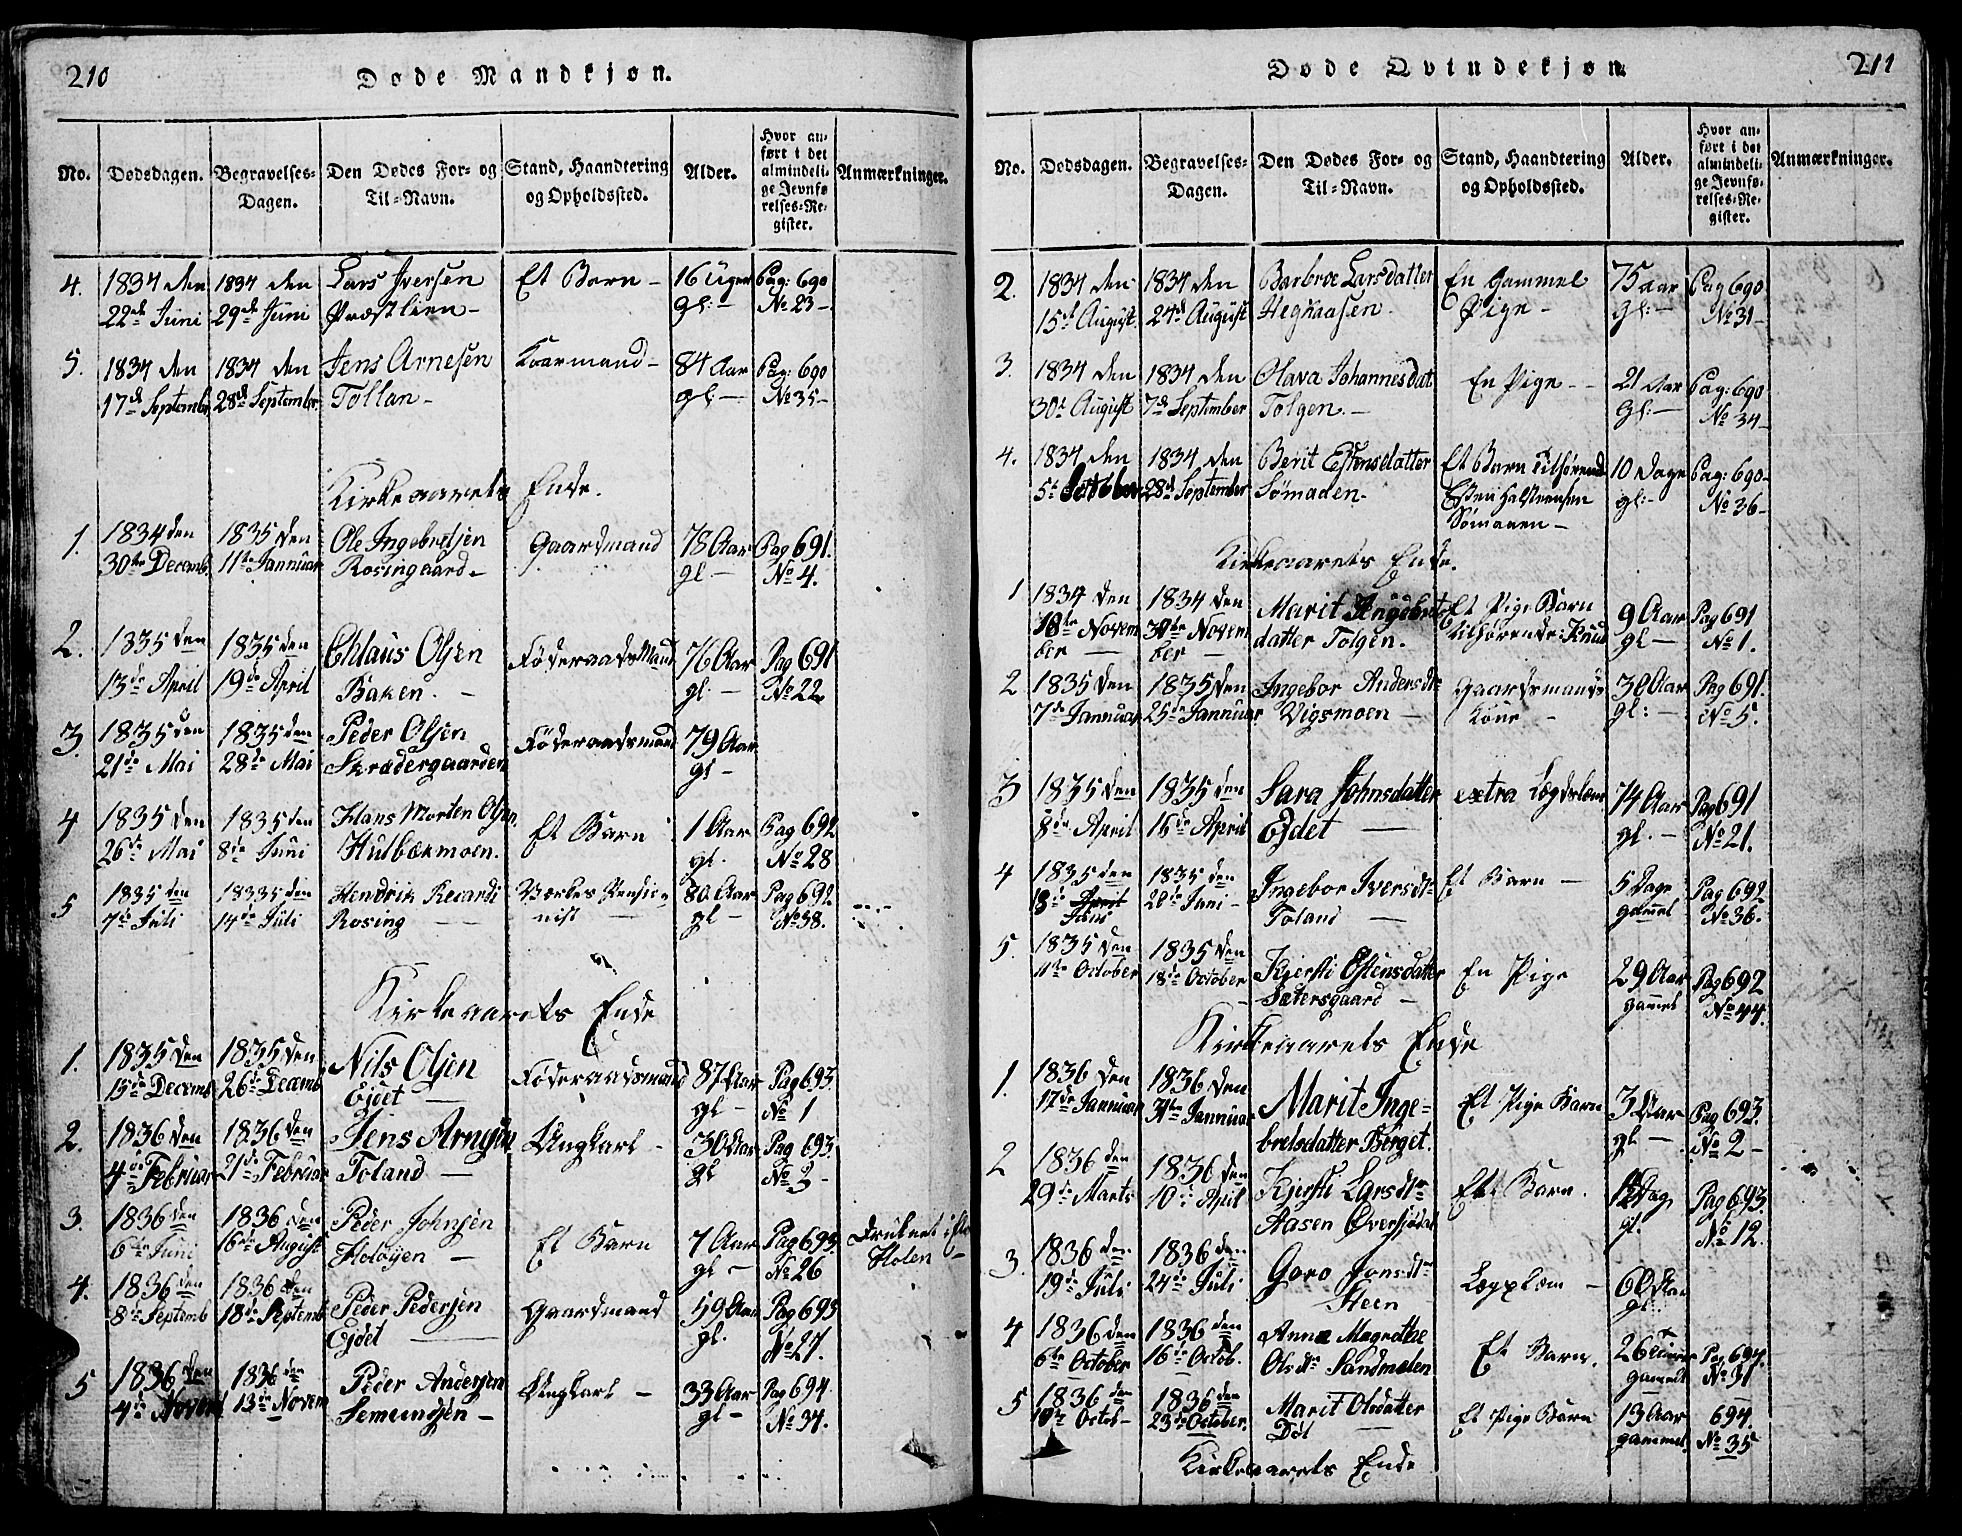 210
Døde Mandkjøn.
No.
Dødsdagen.
Begravelses-
Dagen.
Den Dødes For- og
Til-Navn.
Stand, Haandtering
og Opholdssted.
Alder.
Hvor an-
ført i det
almindeli-
ge Jevnfø-
relses-Re-
gister.
Anmærkninger.
4. 1834 den 1834 den Lars Iversen Et Barn - 16 Uger Pag: 690
22de Juni 29de Juni Præstlien - gl: - No 23 -
5. 1834 den 1834 den Jens Arnesen Kaarmand - 84 Aar Pag: 690
17de Septembr 28de Septembr Tollan - gl: - No 35 -
Kirkeaarets Ende.
1. 1834 den 1835 den Ole Ingebretsen Gaardmand 78 Aar Pag 691.
30te Decemb. 11te Jannuar Rosingaard - gl - No 4.
2. 1835 den 1835 den Chlaus Olsen Føderaads Mand 76 Aar Pag 691
13de April 19de April Baken. - gl. - No 22
3. 1835 den 1835 den Peder Olsen Føderaadsmand 79 Aar
21de Mai 28de Mai Skradergaarden gl -
4 1835 den 1835 den Hans Morten Olsen Et Barn 1 Aar Pag 692
26de Mai 8de Juni Hulbækmoen. gl. No 28
5 1835 den 1835 den Hendrik Recardi Værkes Pensio- 80 Aar Pag 692
7de Juli 14de Juli Rosing - nist - gl - No 38.
Kirkeaarets Ende
1. 1835 den 1835 den Nils Olsen Føderaadsmand 87 Aar Pag 693.
15de Decemb 26de Decemb Ejdet - gl - No 1
2. 1836 den 1836 den Jens Arnesen Ungkarl - 30 Aar Pag 693.
4de Februar 21de Februar Toland - gl No 3 -
3. 1836 den 1836 den Peder Johnsen Et Barn 7 Aar Pag 693. Druknet i
6te Juni 16de August Holøyen - gl - No 26 Holen -
4. 1836 den 1836 den Peder Pedersen Gaardmand 59 Aar Pag 693
8de Septemb 18de Septemb Ejdet - gl. No 27.
5 1836 den 1836 den Peder Andersen Ungkarl - 33 Aar Pag 694.
4de Novem 13de Novem Semundsen - gl - No 34.
211
Døde Qvindekjøn
No.
Dødsdagen.
Begravelses-
Dagen.
Den Dødes For- og
Til-Navn.
Stand, Haandtering
og Opholdssted.
Alder.
Hvor an-
ført i det
almindeli-
ge Jevnfø-
relses-Re-
gister.
Anmærkninger.
2. 1834 den 1834 den Barbroe Larsdatter En Gammel 75 Aar Pag 690
15de August 24de August Heghaasen. Pige - gl: - No 31 -
3. 1834 den 1834 den Olava Johannesdat En Pige - - 21 Aar Pag: 690
30te August 7de September Tolgen. - gl: - No 34 -
4. 1834 den 1834 den Berit Estensdatter Et Barn tilhørende 10 Dage Pag: 690 -
5te October 28de September Sømaden. Esten Halstensen gl: - No 36 -
Sømanen -
Kirkeaarets Ende.
1 1834 den 1834 den Marit Ingebrets Et Pige Barn 9 Aar Pag 691
Novem Novem datter Tolgen. tilhørende: Knud gl - No 1.
ber - ber -
2 1835 den 1835 den Ingebor Andersdtr Gaardsmands 30 Aar Pag 691.
7de Jannuar 25de Jannuar Vigsmoen - Kone - gl: - No 5.
3 1835 den 1835 den Sara Johnsdatter extra Lægdslem 74 Aar Pag 691
8de April 16de April Ejdet - gl. - No 21.
4 1835 den 1835 den Ingebor Iversdtr Et Barn - 5 Dage Pag 692
18de April 28de Juni - Toland - gammel No 36.
Juni
5. 1835 den 1835 den Kjersti Estensdatter En Pige 29 Aar Pag 692
11te October 18de October Sætersgaard - gammel No 44.
Kirkeaarets Ende
1. 1836 den 1836 den Marit Inge- Et Pige Barn 3 Aar Pag 693.
17de Jannuar 31te Jannuar bretsdatter Berget. gl - No 2 -
2 1836 den 1836 den Kjersti Larsdtr Et Barn. Dag Pag 693
29de Marts 10de April Aasen Øversjødal gl. No 12.
3. 1836 den 1836 den Goro Jonsdtr Lægslem - 60 Aar
19de Juli 24de Juli Steen gl.
4 1836 den 1836 den Anna Magrethe Et Barn. 26 Pag 694.
6te October 16de Octob. Olsdtr Sandmælen gammel No 31
5 1836 den 1836 den Marit Olsdatter Et Pige Barn 13 Aar 694.
Octob - 23de October. Døl - gammel. No 35
Kirkeaarets Ende